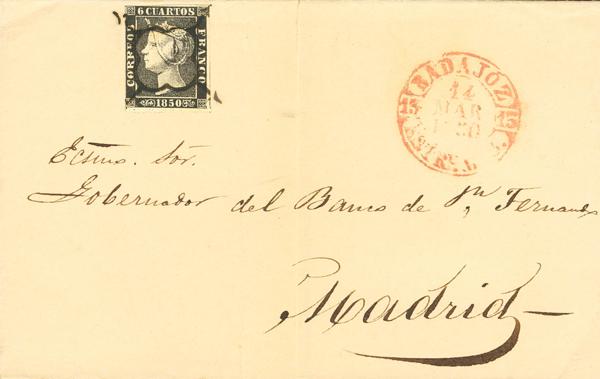 6 CUARTOS
CORREOS
FRANCO
1850
BADAJOZ
14
MAR
15 15
Ecsmo. Sor.
Gobernador del Banco de Sn Fernando
Madrid